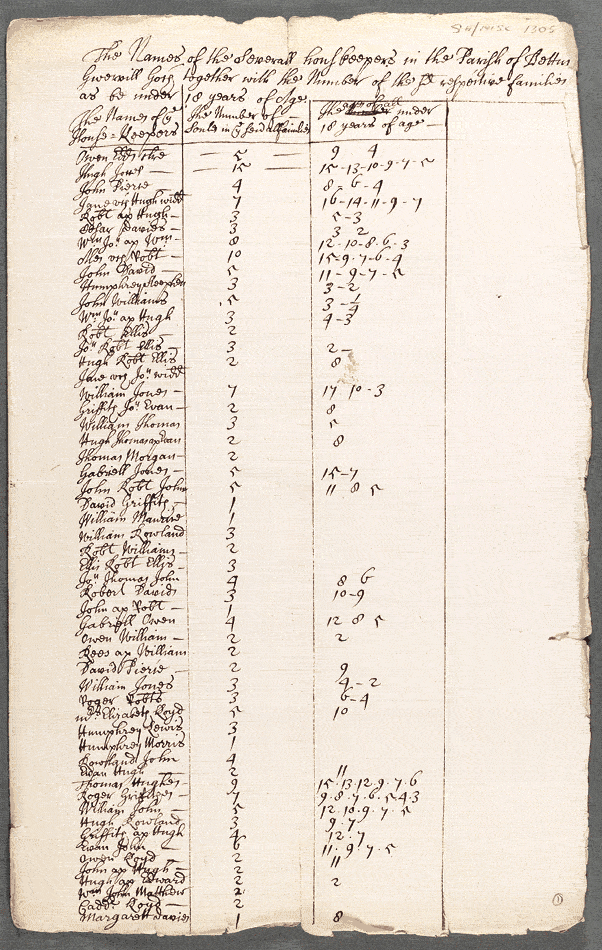 SA/MISC 1305
The Names of the Severall houskeepers in the Parish of Bettws
Gwervill Goch together with the Number of the sd respective families
as be under 18 years of Age
The Names of ye House=Keepers
The Number of Souls in ye severall families
The ages of all under 18 years of age
Owen — 5 9 4
Hugh Jones — 15 15-13-10-9-7-5
John Pierce 4 8-6-4
Jane vch Hugh widd 7 16-14-11-9-7
Robt ap Hugh — 3 5-3
Davies — 3 3 2
Wm Jon ap Wm — 8 12-10-8-6-3
vch Robt — 10 15-9-7-6-4
John David — 5 11-9-7-5
Humphrey 3 3-2
John Williams 5 3-1/4
Wm Jon ap Hugh 3 4-3
Robt Ellis — 2
Jon Robt Ellis — 3 2 —
Hugh Robt Ellis 2 8
Jane vch Jon widd
William Jones — 7 17 10-3
Griffith Jon Evan — 2 8
William Thomas 3 5
Hugh Thomas ap Evan 2 8
Thomas Morgan — 2
Gabriell Jones — 5 15-7
John Robt John 5 11 8 5
David Griffith — 1
William Maurice 1
William Rowland 3
Robt Williams — 2
Ellis Robt Ellis — 3
Jon Thomas John 4 8 6
Robert David 3 10-9
John ap Robt — 1
Gabriell Owen 4 12 8 5
Owen William — 2 2
Rees ap William 2
David Pierce — 2 9
William Jones 3 4-2
Roger Robts 3 6-4
Mrs Elizabeth Lloyd 5 10
Humphrey Lewis 3
Humphrey Morris 1
Rowland John 4
Evan Hugh — 2 11
Thomas Hughes 9 15-13-12-9-7-6
Roger Griffithes — 7 9-8-7-6-5-4-3
William John — 5 12-10-9-7-5
Hugh Rowland 3 9-7
Griffith ap Hugh 4 12-7
Evan John — 6 11-9-7-5
Owen Lloyd — 2 11
John ap Hugh — 2
Hugh ap Edward 2 2
Wm John Matthew 2
Cadd Lloyd — 2
Margarett Davies 1 8
1